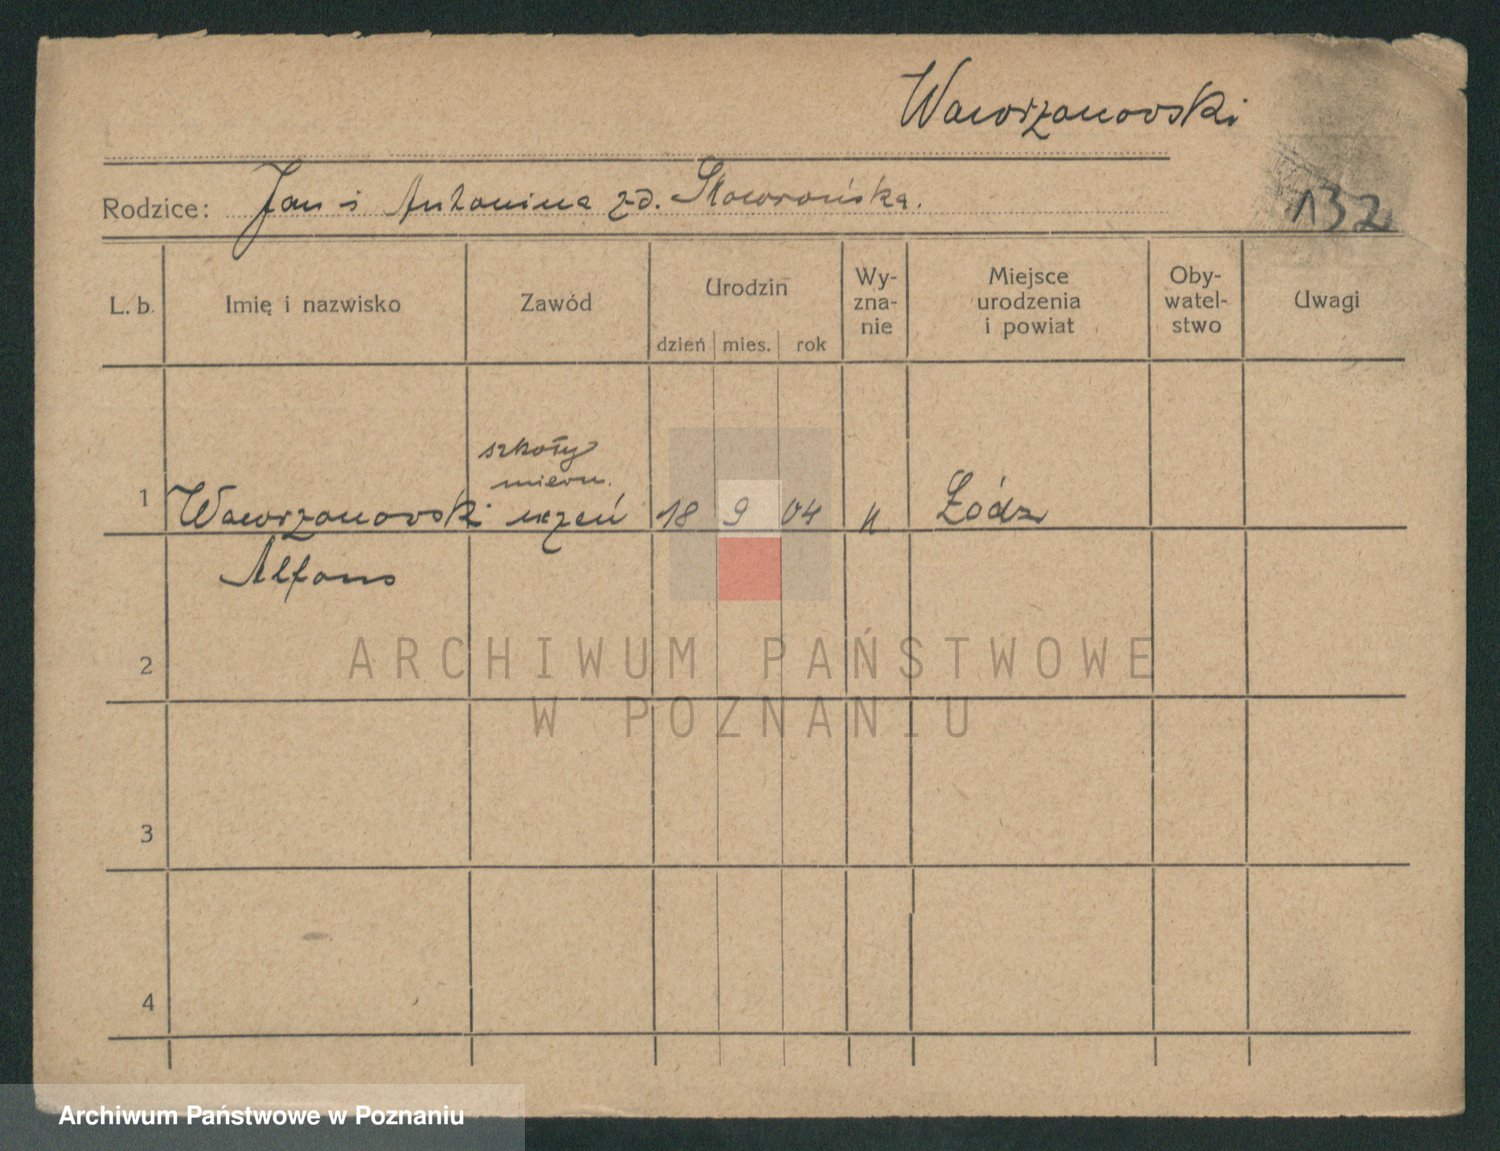 Wawrzanowski
Rodzice: Jan i Antonina z d. Skowrońska.
132
L. b. Imię i nazwisko Zawód Urodzin dzień mies. rok Wy-zna-nie Miejsce urodzenia i powiat Oby-watel-stwo Uwagi
szkoły
miern.
1 Wawrzanowski uczeń 18 9 04 k Łódz
Alfons
2
3
4
ARCHIWUM PAŃSTWOWE
W POZNANIU
Archiwum Państwowe w Poznaniu